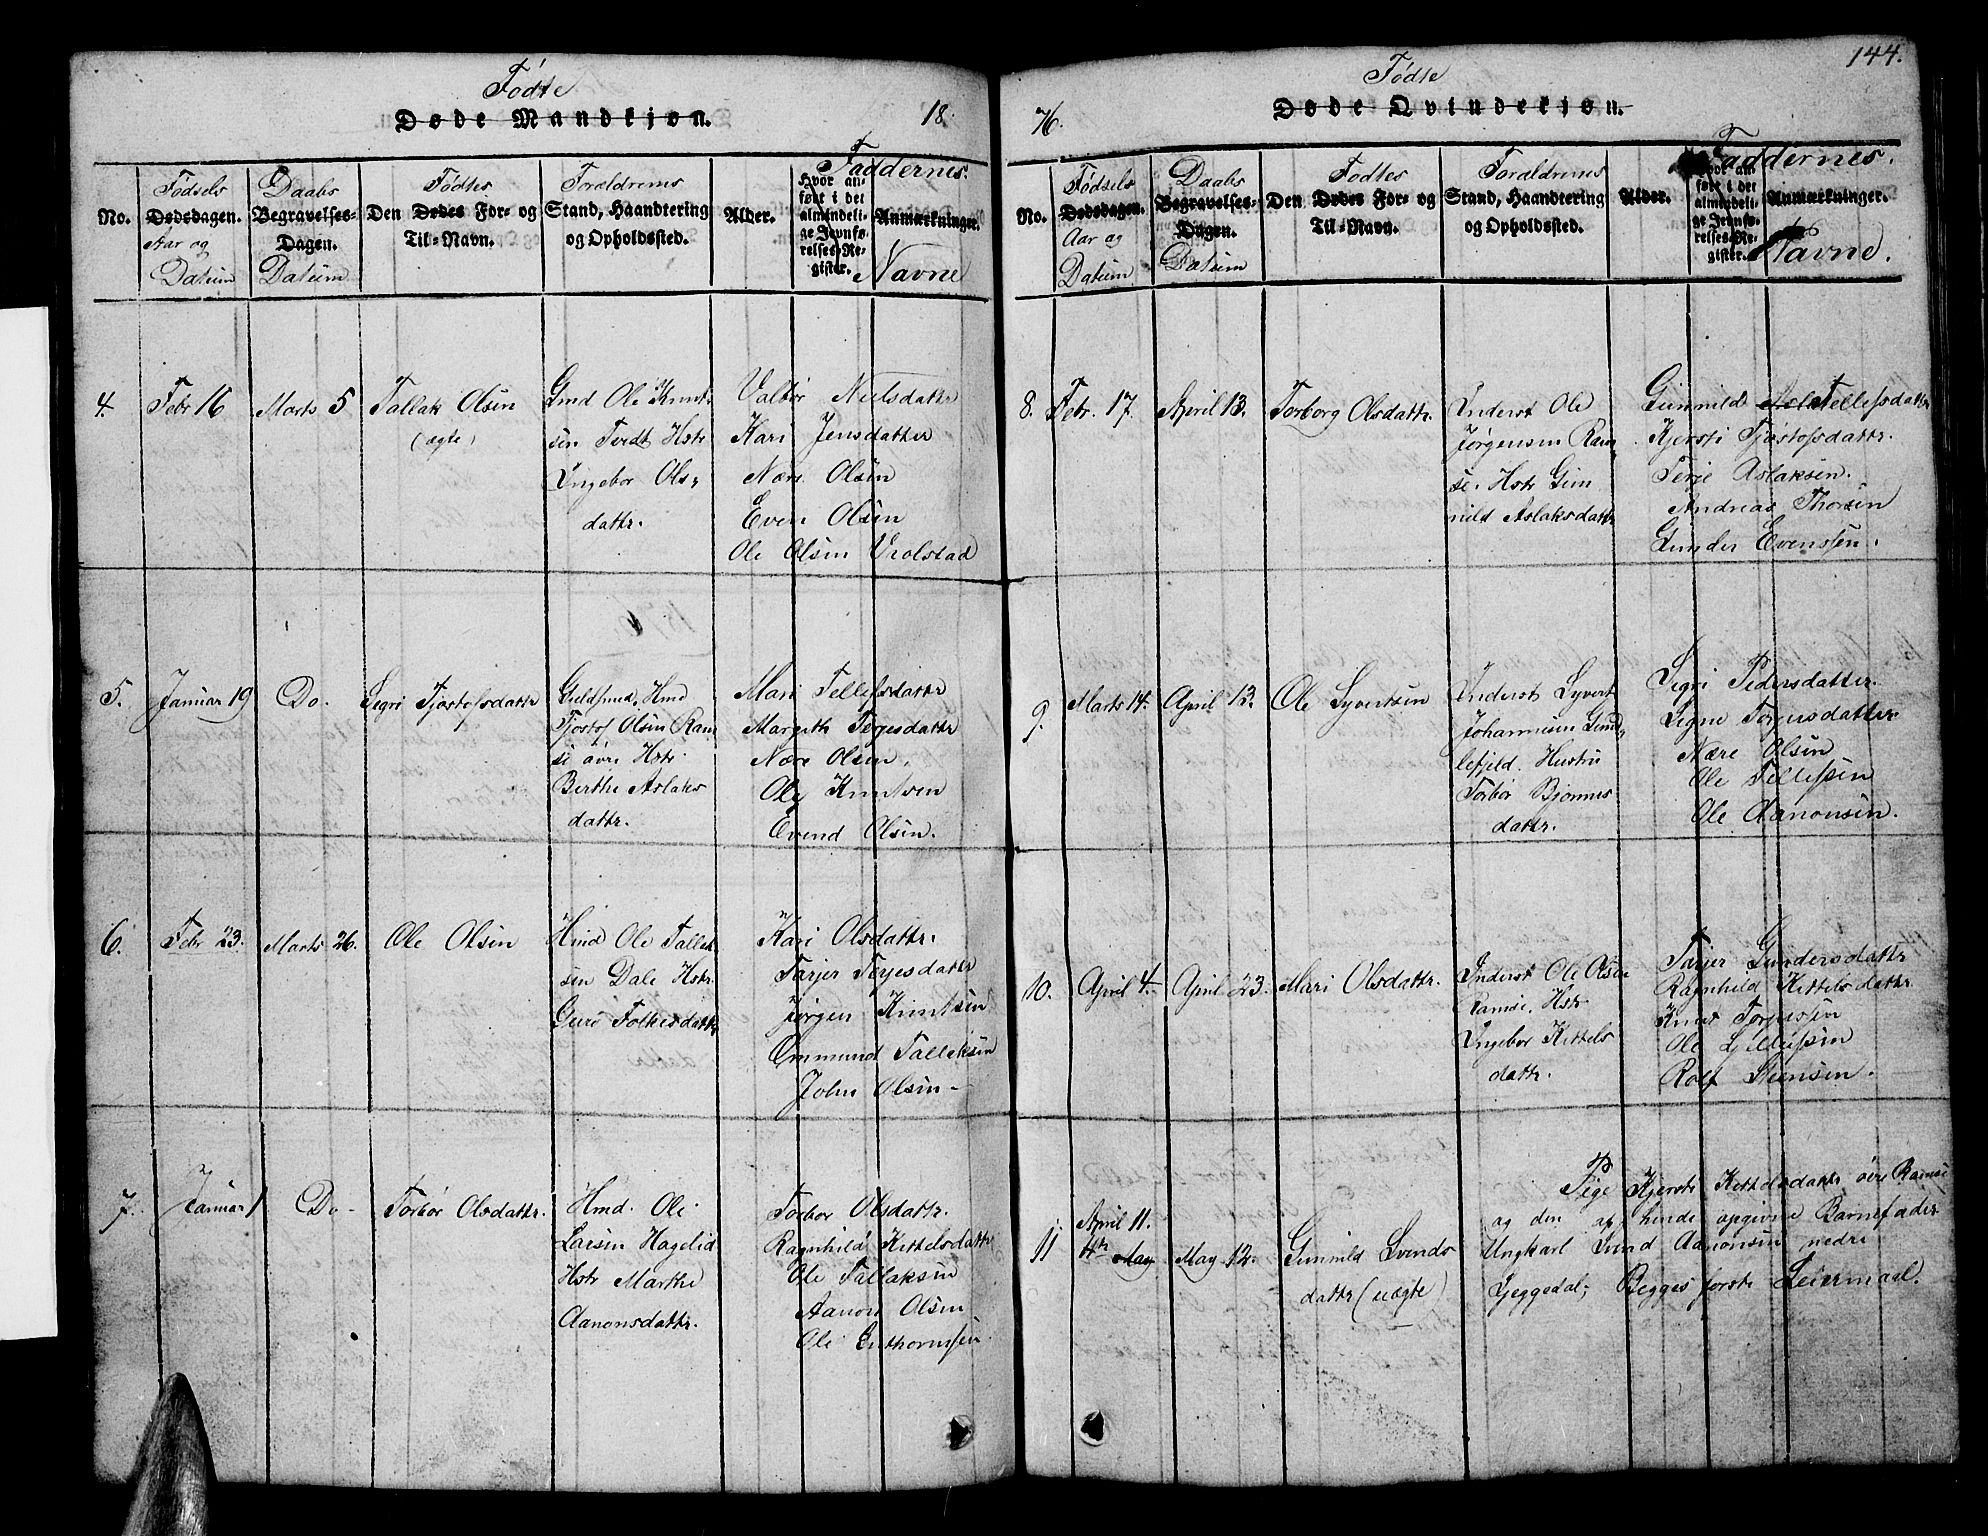 Fødte
Døde Mandkjøn.
18.
Faddernes.
No.
Fødsels
Dødsdagen.
Aar og
Datum
Daabs
Begravelses-
Dagen.
Datum
Fødtes
Den Dødes For- og
Til-Navn.
Foraldrernes
Stand, Haandtering
og Opholdssted.
Alder.
Hvor an-
ført i det
almindeli-
ge Jevnfø-
relses-Re-
gister.
Anmærkninger.
Navne
4.
Febr 16
Marts 5
Tallak Olsen
(ægte)
Gmd Ole Knut-
sen Tvedt Hstr
Ingebor Ols-
dattr.
Valbor Nielsdattr
Kari Jensdatter
Nære Olsen
Even Olsen
Ole Olsen Vrolstad
5.
Januar 19
Do.
Segri Tjostofsdattr
Tjostof Olsen Ram
se øvre Hstr
Berthe Aslaks
dattr.
Mari Tellefsdattr
Margith Terjesdattr
Nære Olsen.
Ole Knutsen
Evend Olsen.
6.
Febr 23.
Marts 26.
Ole Olsen
Hmd Ole Tallak
sen Dale Hstr.
Guro Folkesdattr
Kari Olsdattr.
Tarjer Terjesdattr
Jørgen Knutsen
Ommund Tallaksen
John Olsen
7.
Januar 1
Do
Torbor Olsdattr.
Hmd. Ole
Larsen Hagelid
Hstr Marthe
Aanonsdattr.
Torbor Olsdattr.
Ragnhild Kittelsdattr
Ole Tallaksen
Aanon Olsen
Ole Guthormsen
144.
Fødte
Døde Qvindekjøn.
76.
Faddernes.
No.
Fødsels
Dødsdagen.
Aar og
Datum
Daabs
Begravelses-
Dagen.
Datum
Fødtes
Den Dødes For- og
Til-Navn.
Foraldrernes
Stand, Haandtering
og Opholdssted.
Alder.
Hvor an-
ført i det
almindeli-
ge Jevnfø-
relses-Re-
gister.
Anmærkninger.
Navne.
8.
Febr. 17.
April 13.
Torborg Olsdattr.
Inderst Ole
Jørgensen Ram
se. Hstr Gun
nild Aslaksdattr
Gunnild Tellefsdattr
Kjersti Tjostofsdattr.
Terje Aslaksen.
Andreas Thorsen
Gunder Evensen.
9.
Marts 14.
April 13.
Ole Syvertsen
Inderst Syvert
Johannesen Gund
lefjeld. Hustru
Torbor Bjornus
dattr.
Segri Pedersdatter.
Signe Torjusdatter
Nære Olsen
Ole Tellefsen
Ole Aanonsen.
10.
April 4.
April 23.
Mari Olsdattr.
Inderst Ole Olsen
Ramse. Hstr
Ingebor Kittels
dattr.
Tarjer Gundersdattr
Ragnhild Kittelsdattr.
Knut Torjussen
Rolf Steensen.
11
April 11.
May
May 12.
Gunnild Svends
dattr (uægte)
Pige Kjersti Kittelsdattr øvre Ramse
og den af hende opgivne Barnefader
Ungkarl Svend Aanonsen nedre
Gjeggedal; Begges første Leiermaal.